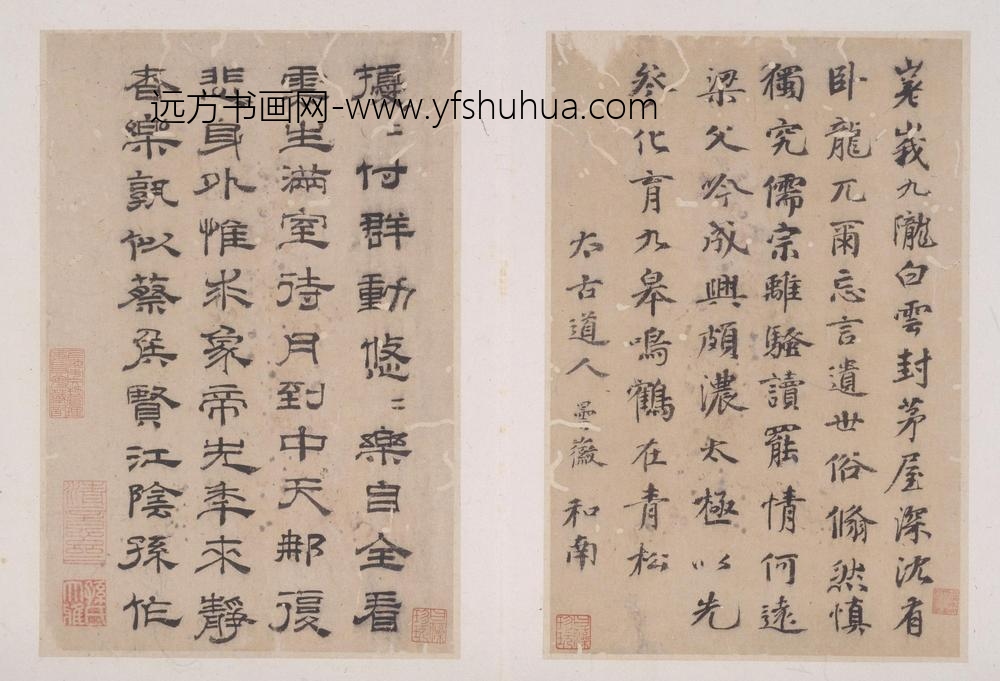 峩九隴白雲封茅屋深沈有
卧龍兀爾忘言遺世俗翛然慎
獨究儒宗離騷讀罷情何遠
梁父吟成興頗濃太極以先
叅化育九皋鳴鶴在青松
太古道人 徽 和南
擾〻付群動悠〻樂自全看
雲生滿室待月到中天那復
身外惟求象帝先秊來靜
杳樂孰似蔡矦賢江陰孫作
远方书画网-www.yfshuhua.com